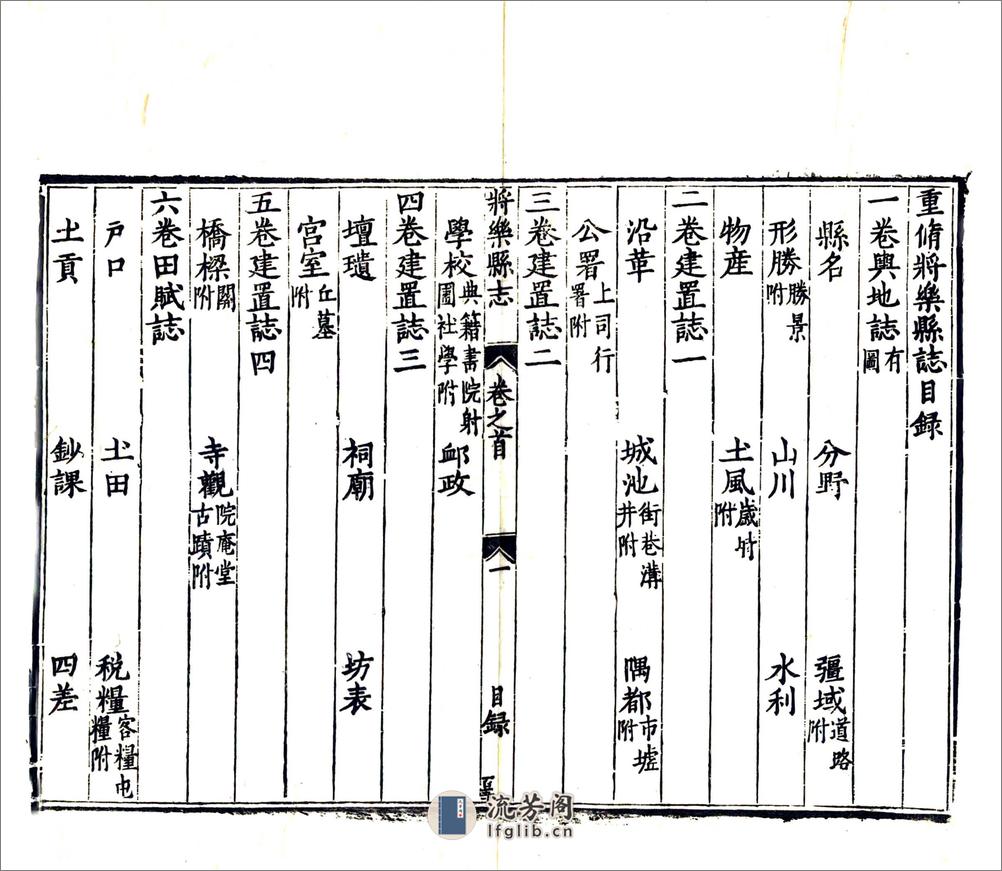 重脩將樂縣誌目録
一卷輿地誌有圖
縣名 分野 疆域道路附
形勝勝景附 山川 水利
物産 土風歲时附
二卷建置誌一
沿革 城池街巷溝井附 隅都市墟附
公署上司行署附
三卷建置誌二
將樂縣志 卷之首 一 目録
學校典籍書院射圃社學附 邮政
四卷建置誌三
壇壝 祠廟 坊表
宮室丘墓附
五卷建置誌四
橋樑關附 寺觀院庵堂古蹟附
六卷田賦誌
戶口 土田 税糧客糧屯糧附
土貢 鈔課 四差
流芳阁
lfglib.cn